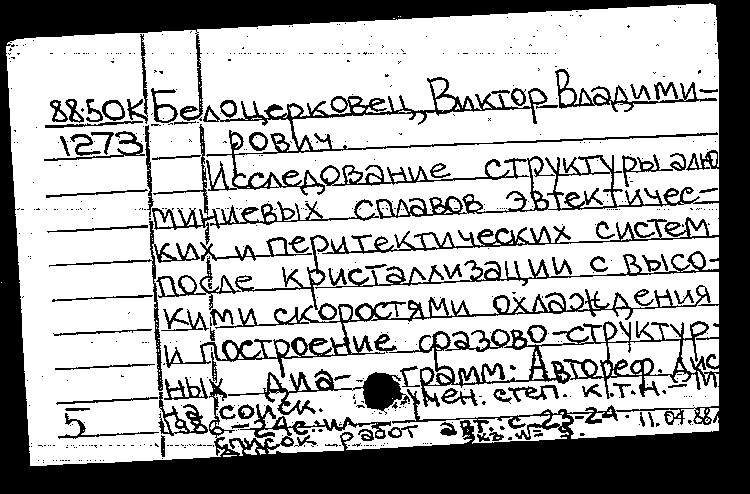 88:50К Белоцерковец, Виктор Владими-
1273 рович.
Исследование структуры алю
миниевых сплавов эвтектичес-
ких и перитектических систем
после кристаллизации с высо-
кими скоростями охлаждения
и построение фазово-структур-
ных диа- грамм: Автореф. Дис
на соиск. учен. степ. к.т.н. - М
5 1986 - 24с.:ил
список работ авт.: с. 23-24. 11.04.88